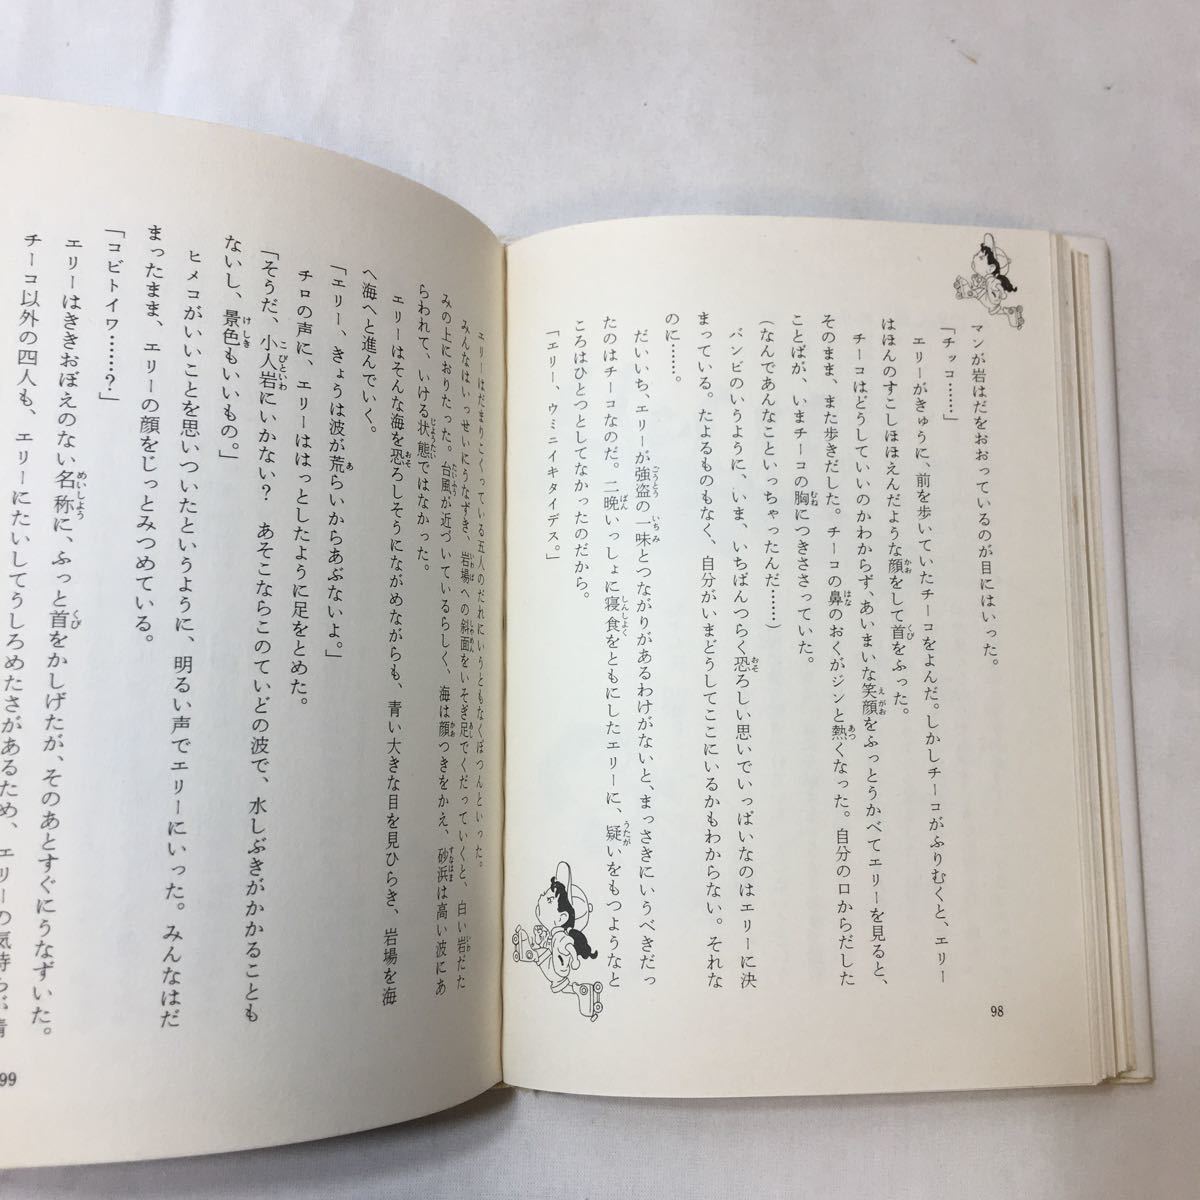 マンが岩はだをおおっているのが目にはいった。
「チッコ……」
エリーがきゅうに、前を歩いていたチーコをよんだ。しかしチーコがふりむくと、エリー
はほんのすこしほほえんだような顔をして首をふった。
チーコはどうしていいのかわからず、あいまいな笑顔をふっとうかべてエリーを見ると、
そのまま、また歩きだした。チーコの鼻のおくがジンと熱くなった。自分の口からだした
ことばが、いまチーコの胸につきささっていた。
(なんであんなこといっちゃったんだ……)
バンビのいうように、いま、いちばんつらく恐ろしい思いでいっぱいなのはエリーに決
まっている。たよるものもなく、自分がいまどうしてここにいるかもわからない。それな
のに……。
だいいち、エリーが強盗の一味とつながりがあるわけがないと、まっさきにいうべきだっ
たのはチーコなのだ。二晩いっしょに寝食をともにしたエリーに、疑いをもつようなと
ころはひとつとしてなかったのだから。
「エリー、ウミニイキタイデス。」
98
エリーはだまりこくっている五人のだれにいうともなくぽつんといった。
みんなはいっせいにうなずき、岩場への斜面をいそぎ足でくだっていくと、白い岩だた
みの上におりたった。台風が近づいているらしく、海は顔つきをかえ、砂浜は高い波にあ
らわれて、いける状態ではなかった。
エリーはそんな海を恐ろしそうにながめながらも、青い大きな目を見ひらき、岩場を海
へ海へと進んでいく。
「エリー、きょうは波が荒いからあぶないよ。」
チロの声に、エリーははっとしたように足をとめた。
「そうだ、小人岩にいかない? あそこならこのていどの波で、水しぶきがかかることも
ないし、景色もいいもの。」
ヒメコがいいことを思いついたというように、明るい声でエリーにいった。みんなはだ
まったまま、エリーの顔をじっとみつめている。
「コビトイワ……?」
エリーはききおぼえのない名称に、ふっと首をかしげたが、そのあとすぐにうなずいた。
チーコ以外の四人も、エリーにたいしてうしろめたさがあるため、エリーの気持ち
99